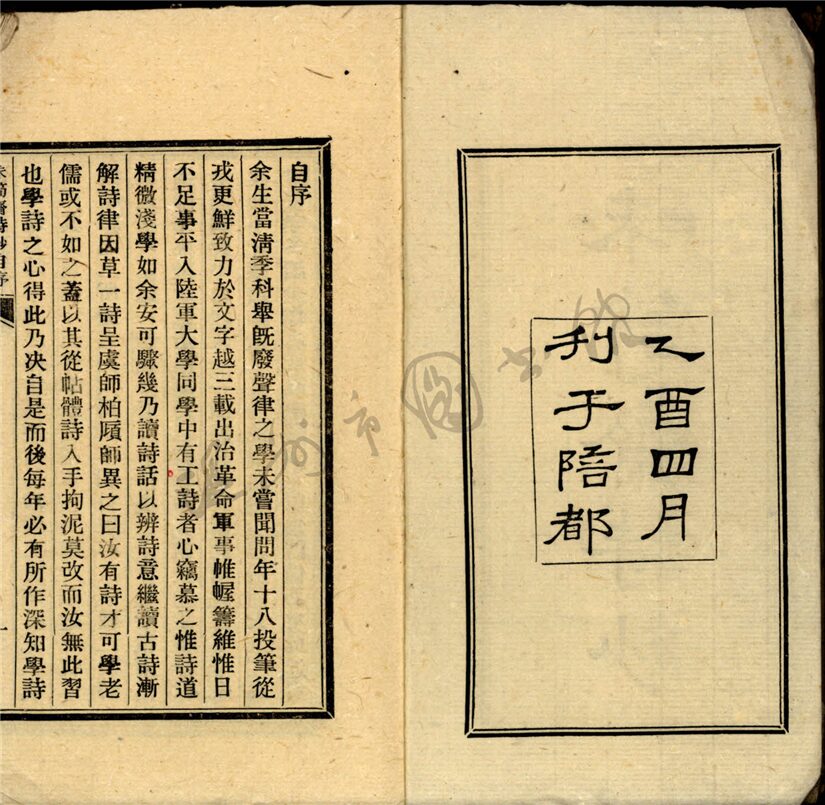 乙酉四月
刊于陪都
自序
余生當清季科舉旣廢聲律之學未嘗聞問年十八投筆從
戎更鮮致力於文字越三載出治革命軍事帷幄籌維惟日
不足事平入陸軍大學同學中有工詩者心竊慕之惟詩道
精微淺學如余安可驟幾乃讀詩話以辨詩意繼讀古詩漸
解詩律因草一詩呈虞師柏頎師異之曰汝有詩才可學老
儒或不如之蓋以其從帖體詩入手拘泥莫改而汝無此習
也學詩之心得此乃决自是而後每年必有所作深知學詩
齋詩鈔自序
一